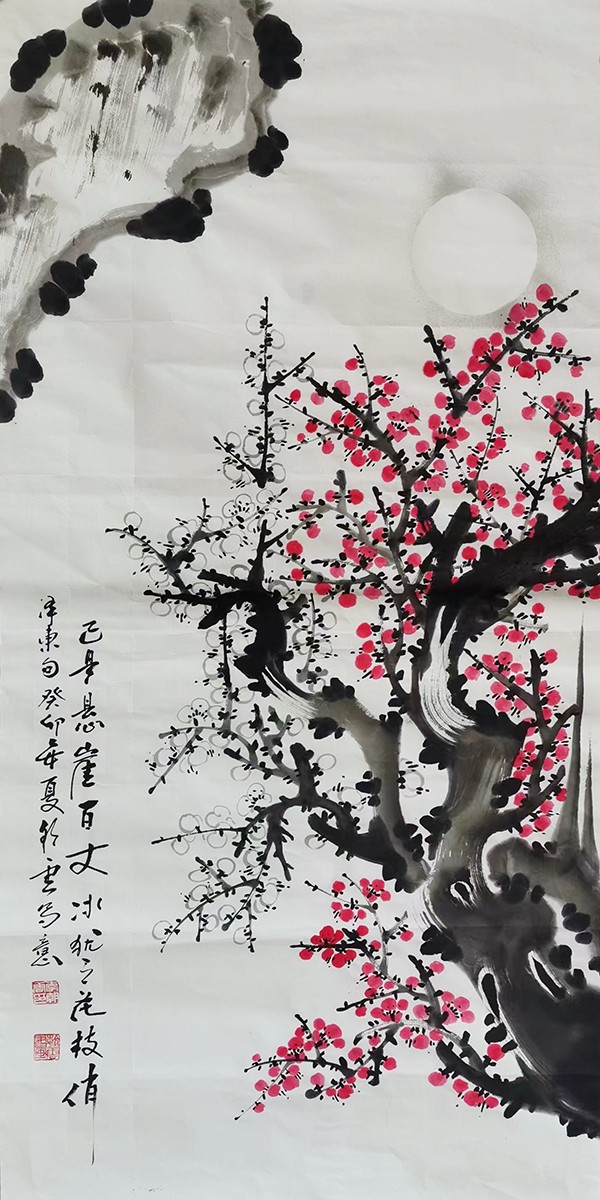 已是悬崖百丈冰犹有花枝俏
泽东句癸卯年夏彩云写意